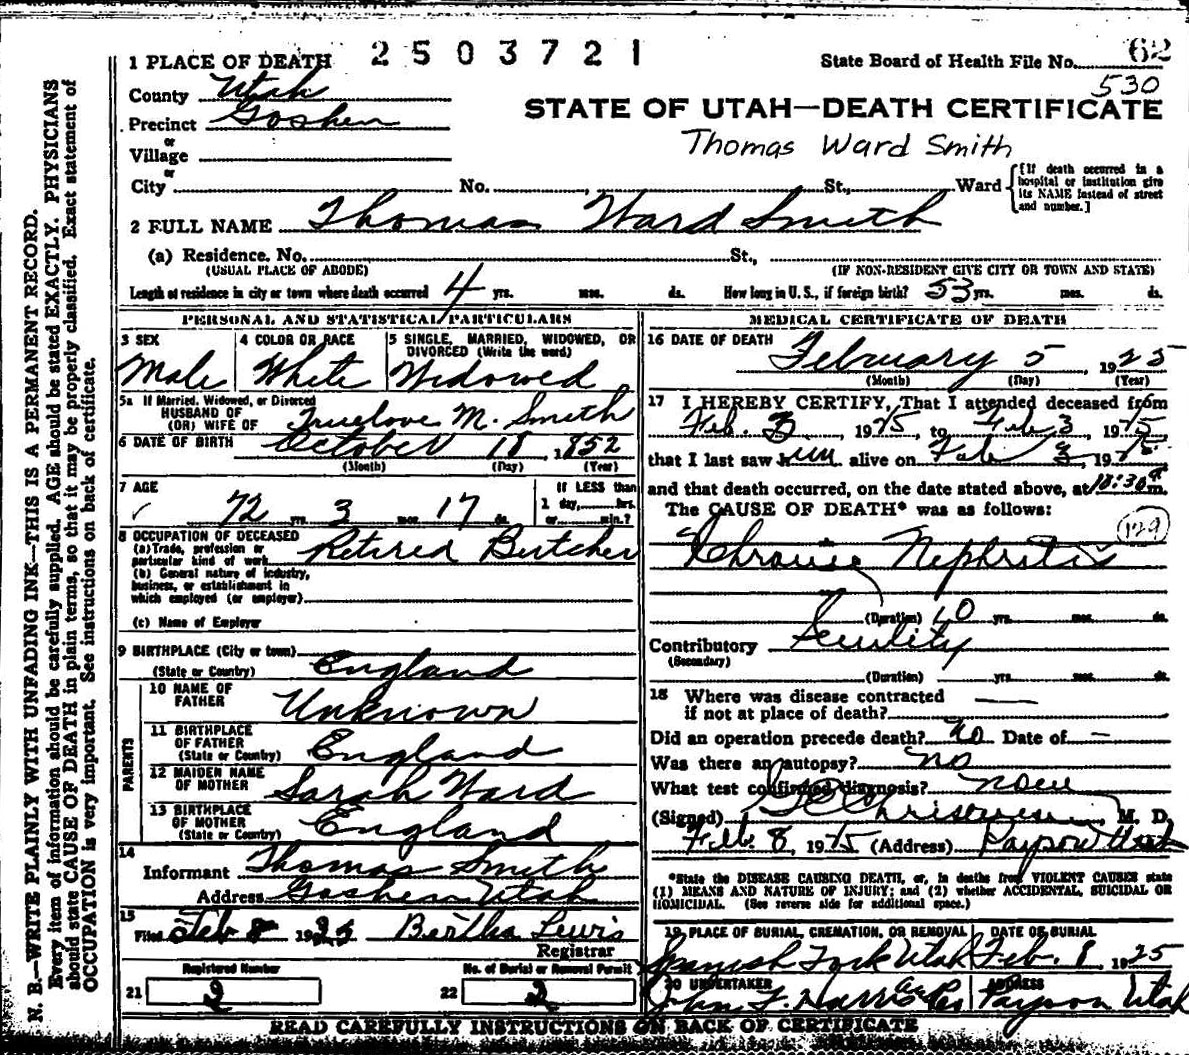 2503721
62
1 PLACE OF DEATH
State Board of Health File No.
530
County Utah
STATE OF UTAH—DEATH CERTIFICATE
Precinct Goshen
or
Village
Thomas Ward Smith
or
City No. St., Ward
[If death occurred in a hospital or institution give its NAME instead of street and number.]
2 FULL NAME Thomas Ward Smith
(a) Residence. No. St.,
(USUAL PLACE OF ABODE) (IF NON-RESIDENT GIVE CITY OR TOWN AND STATE)
Length of residence in city or town where death occurred 4 yrs. mos. ds. How long in U.S., if foreign birth? 53 yrs. mos. ds.
PERSONAL AND STATISTICAL PARTICULARS
3 SEX
Male
4 COLOR OR RACE
White
5 SINGLE, MARRIED, WIDOWED, OR
DIVORCED (Write the word)
Widowed
5a If Married, Widowed, or Divorced
HUSBAND OF
(OR) WIFE OF Truelove M. Smith
6 DATE OF BIRTH October 18, 1852
(Month) (Day) (Year)
7 AGE
72 yrs. 3 mos. 17 ds.
If LESS than
1 day, hrs.
or min.?
8 OCCUPATION OF DECEASED
(a) Trade, profession or
particular kind of work Retired Butcher
(b) General nature of industry,
business, or establishment in
which employed (or employer)
(c) Name of Employer
9 BIRTHPLACE (City or town)
(State or Country) England
PARENTS
10 NAME OF
FATHER Unknown
11 BIRTHPLACE
OF FATHER
(State or Country) England
12 MAIDEN NAME
OF MOTHER Sarah Ward
13 BIRTHPLACE
OF MOTHER
(State or Country) England
14
Informant Thomas Smith
Address Goshen Utah
15
Filed Feb 8 1925 Bertha Lewis
Registrar
Registered Number
21 2
No. of Burial or Removal Permit
22 2
MEDICAL CERTIFICATE OF DEATH
16 DATE OF DEATH
February 5, 1925
(Month) (Day) (Year)
17 I HEREBY CERTIFY, That I attended deceased from
Feb. 3, 1925, to Feb 3, 1925
that I last saw him alive on Feb 3, 1925
and that death occurred, on the date stated above, at 10:30 a m.
The CAUSE OF DEATH* was as follows:
129
Chronic Nephritis
(Duration) 10 yrs. mos. ds.
Contributory Senility
(Secondary)
(Duration) yrs. mos. ds.
18 Where was disease contracted
if not at place of death? —
Did an operation precede death? No Date of —
Was there an autopsy? no
What test confirmed diagnosis? none
(Signed) M. D.
Feb. 8, 1925 (Address) Payson Utah
*State the DISEASE CAUSING DEATH, or, in deaths from VIOLENT CAUSES state
(1) MEANS AND NATURE OF INJURY; and (2) whether ACCIDENTAL, SUICIDAL OR
HOMICIDAL. (See reverse side for additional space.)
19 PLACE OF BURIAL, CREMATION, OR REMOVAL
Spanish Fork Utah
DATE OF BURIAL
Feb. 8, 1925
20 UNDERTAKER
John F. Harris
ADDRESS
Payson Utah
READ CAREFULLY INSTRUCTIONS ON BACK OF CERTIFICATE
N. B.—WRITE PLAINLY WITH UNFADING INK—THIS IS A PERMANENT RECORD.
Every item of information should be carefully supplied. AGE should be stated EXACTLY. PHYSICIANS
should state CAUSE OF DEATH in plain terms, so that it may be properly classified. Exact statement of
OCCUPATION is very important. See instructions on back of certificate.